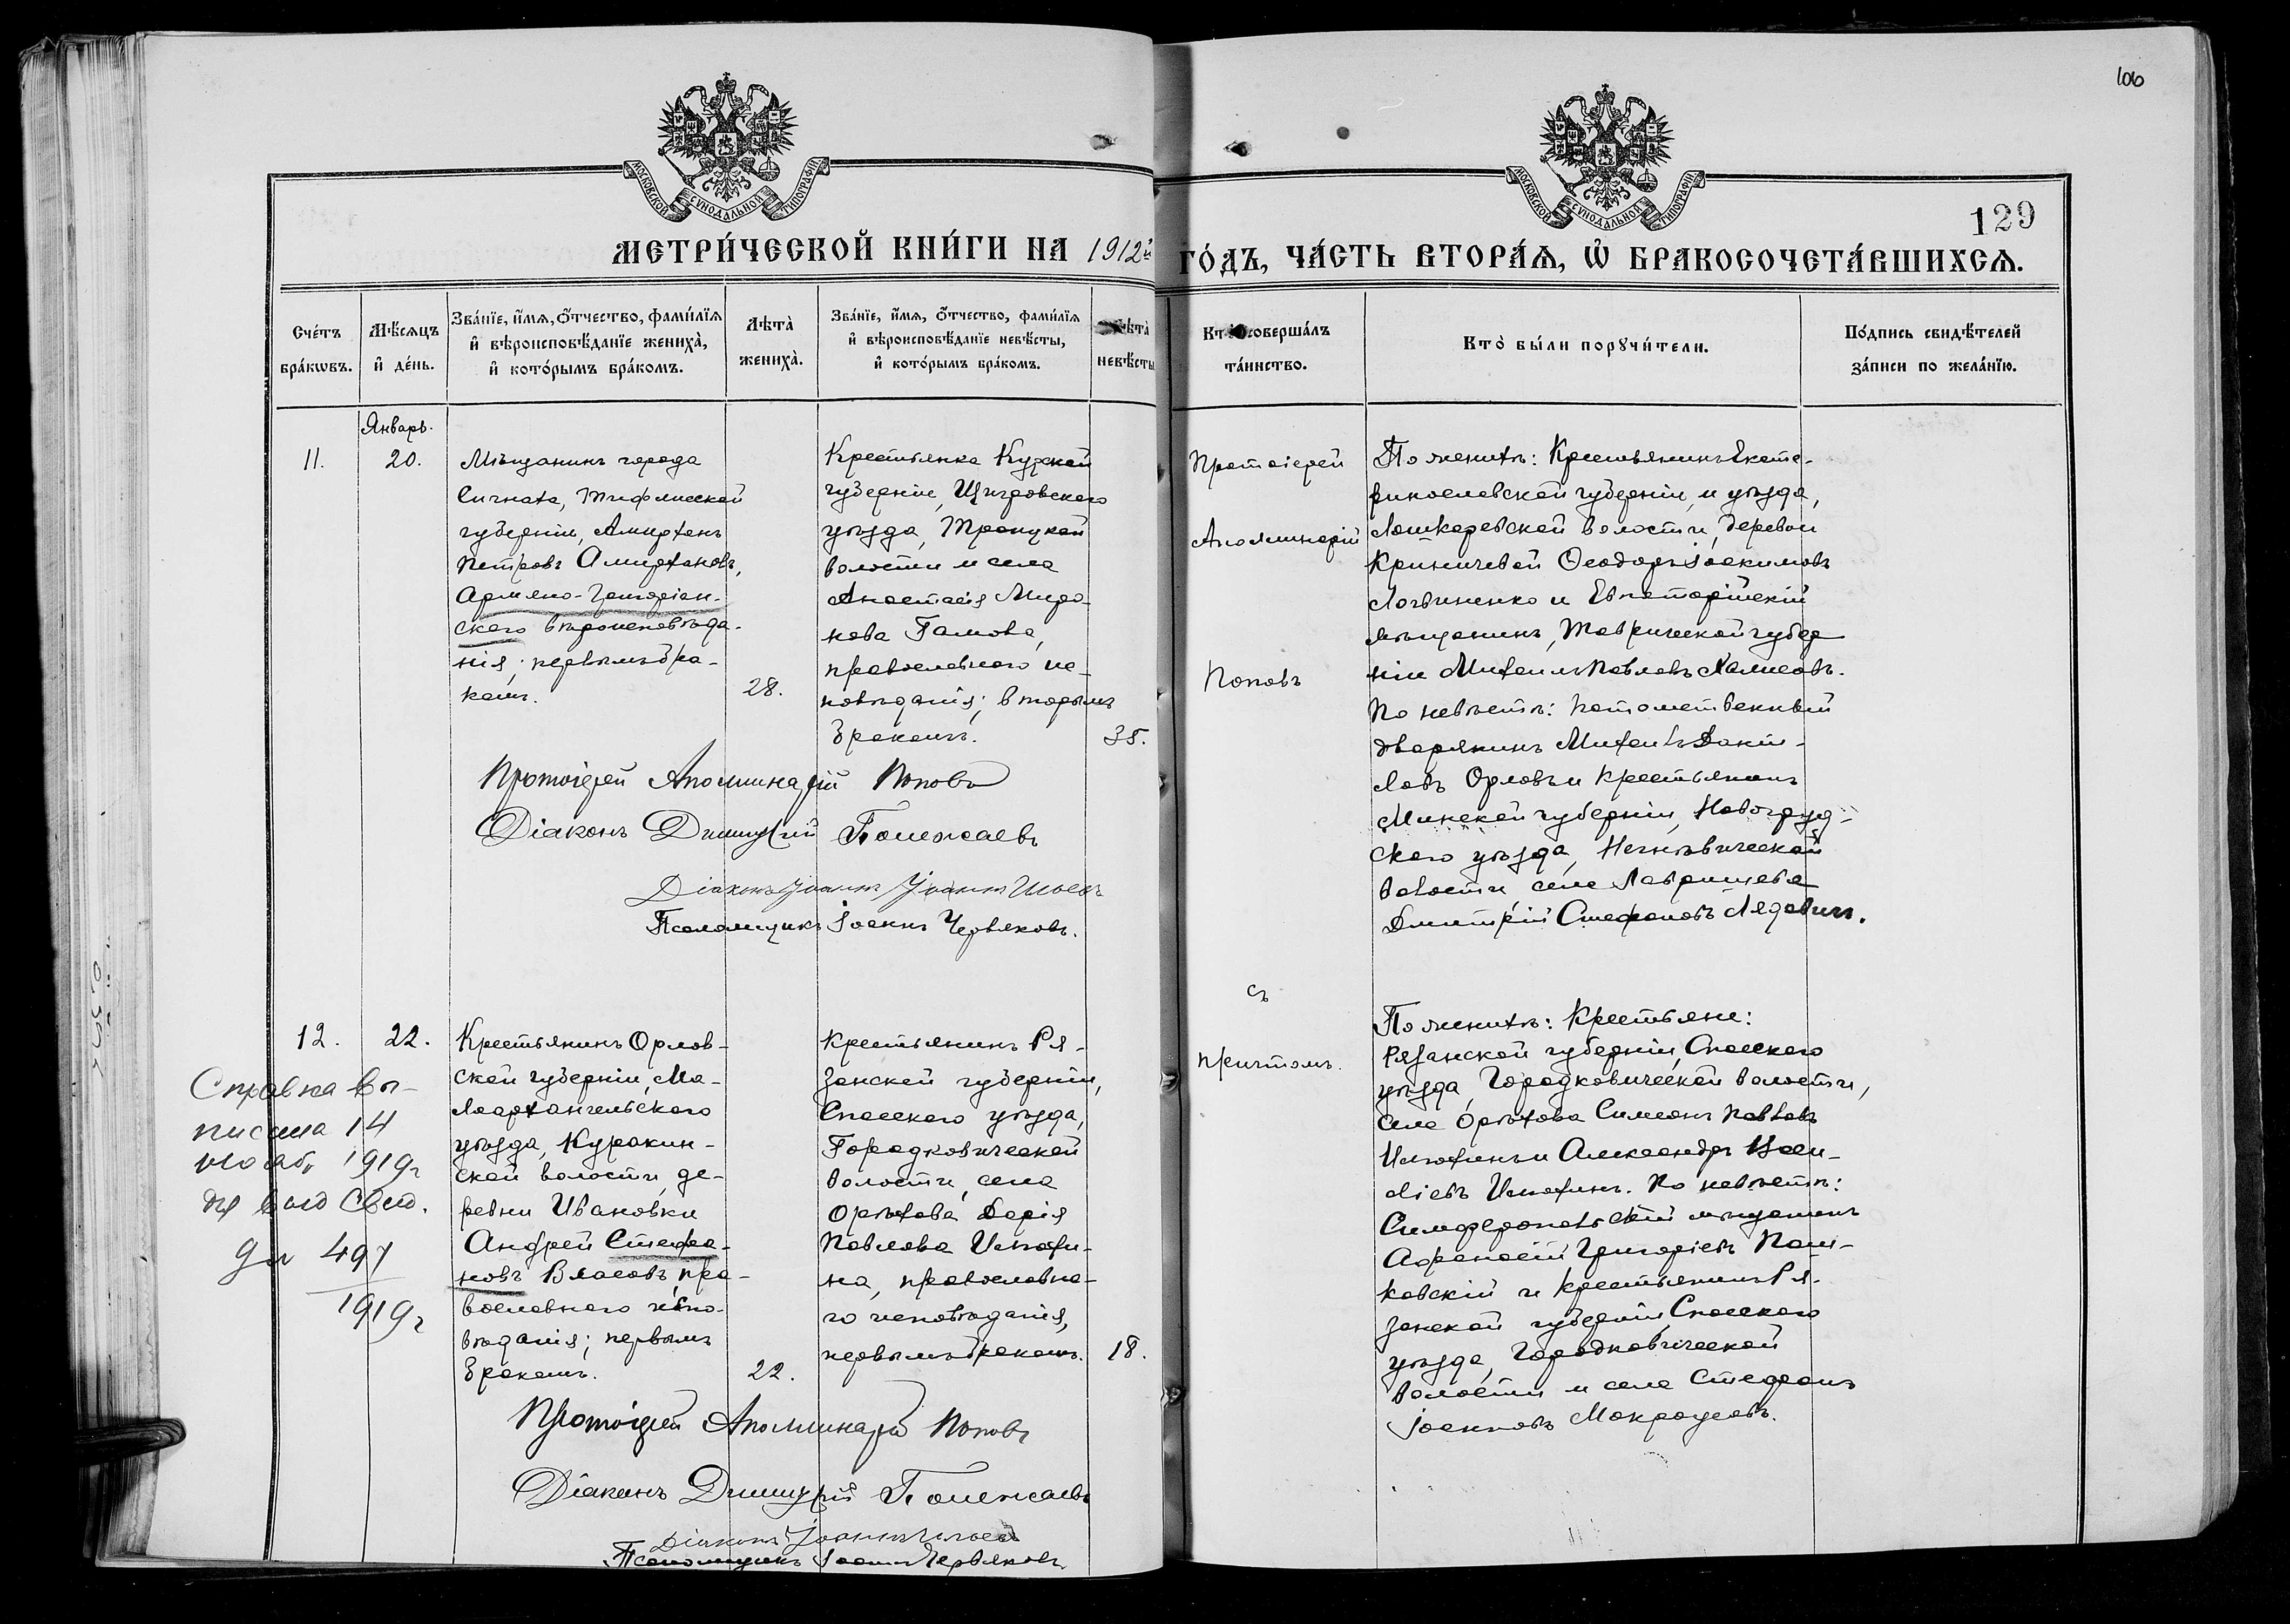 106
МОСКОВСКОЙ СѴНОДАЛЬНОЙ ТИПОГРАФІИ
МОСКОВСКОЙ СѴНОДАЛЬНОЙ ТИПОГРАФІИ
129
МЕТРИ́ЧЕСКОЙ КНИ́ГИ НА 1912й ГО́ДЪ, ЧА́СТЬ ВТОРА́Ѧ, Ѽ БРАКОСОЧЕТА́ВШИХСѦ.
Сче́тъ
бра́кѡвъ.
Мѣ́сѧцъ
и҆ де́нь.
Зва́нїе, и҆́мѧ, ѻ҆́тчество, фами́лїѧ
и҆ вѣроисповѣ́данїе жениха̀,
и҆ кото́рымъ бра́комъ.
Лѣта̀
жениха̀.
Зва́нїе, и҆́мѧ, ѻ҆́тчество, фами́лїѧ
и҆ вѣроисповѣ́данїе невѣ́сты,
и҆ кото́рымъ бра́комъ.
Лѣта̀
невѣ́сты
Кто̀ соверша́лъ
та́инство.
Кто̀ бы́ли порꙋчи́тели.
По́дпись свидѣ́телей
за́писи по жела́нїю.
Январь.
11.
20.
Мѣщанинъ города
Сигнаха, Тифлисской
губерніи, Амирханъ
Петровъ Амирхановъ,
Армяно-Григоріан-
скаго вѣроисповѣда-
нія; первымъ бра-
комъ.
28.
Крестьянка Курской
губерніи, Щигровскаго
уѣзда, Троицкой
волости и села
Анастасія Миро-
нова Гамова,
православнаго ис-
повѣданія; вторымъ
бракомъ.
35.
Протоіерей
Аполлинарій
Поповъ
По женихѣ: Крестьянинъ Екате-
ринославской губерніи и уѣзда,
Лошкаревской волости, деревни
Криничевой Ѳеодоръ Іоакимовъ
Логвиненко и Евпаторійскій
мѣщанинъ, Таврической губер
ніи Михаилъ Павловъ Халисовъ.
По невѣстѣ: Потомственный
дворянинъ Михаилъ Даніи-
ловъ Орловъ и крестьянинъ
Минской губерніи, Новогруд-
скаго уѣзда, Негнѣвической
волости, села Лавришева
Дмитрій Стефановъ Лядовичъ.
Протоіерей Аполлинарій Поповъ
Діаконъ Димитрій Полежаевъ
Діаконъ Іоаннъ Ильевъ
Псаломщикъ Іоаннъ Червяковъ.
12.
22.
Крестьянинъ Орлов-
ской губерніи, Ма-
лоархангельскаго
уѣзда, Куракин-
ской волости, де-
ревни Ивановки
Андрей Стефа-
новъ Власовъ, пра-
вославнаго испо-
вѣданія; первымъ
бракомъ.
22.
Крестьянинъ Ря-
занской губерніи,
Спасскаго уѣзда,
Городковической
волости, села
Орѣхова Дарія
Павлова Илюхи-
на, православна-
го исповѣданія,
первымъ бракомъ.
18.
съ
причтомъ.
По женихѣ: Крестьяне:
Рязанской губерніи, Спасскаго
уѣзда, Городковической волости,
села Орѣхова Симеонъ Павловъ
Илюхинъ и Александръ Васи-
ліевъ Илюхинъ. По невѣстѣ:
Симферопольскій мѣщанинъ
Аѳанасій Григоріевъ Паш-
ковскій и крестьянинъ Ря-
занской губерніи, Спасскаго
уѣзда, Городковической
волости и села Стефанъ
Іоанновъ Мокроусовъ.
Справка вы-
писана 14
1919г
выд свид.
497
1919г
Протоіерей Аполлинарій Поповъ
Діаконъ Димитрій Полежаевъ
Діаконъ Іоаннъ Ильевъ
Псаломщикъ Іоаннъ Червяковъ